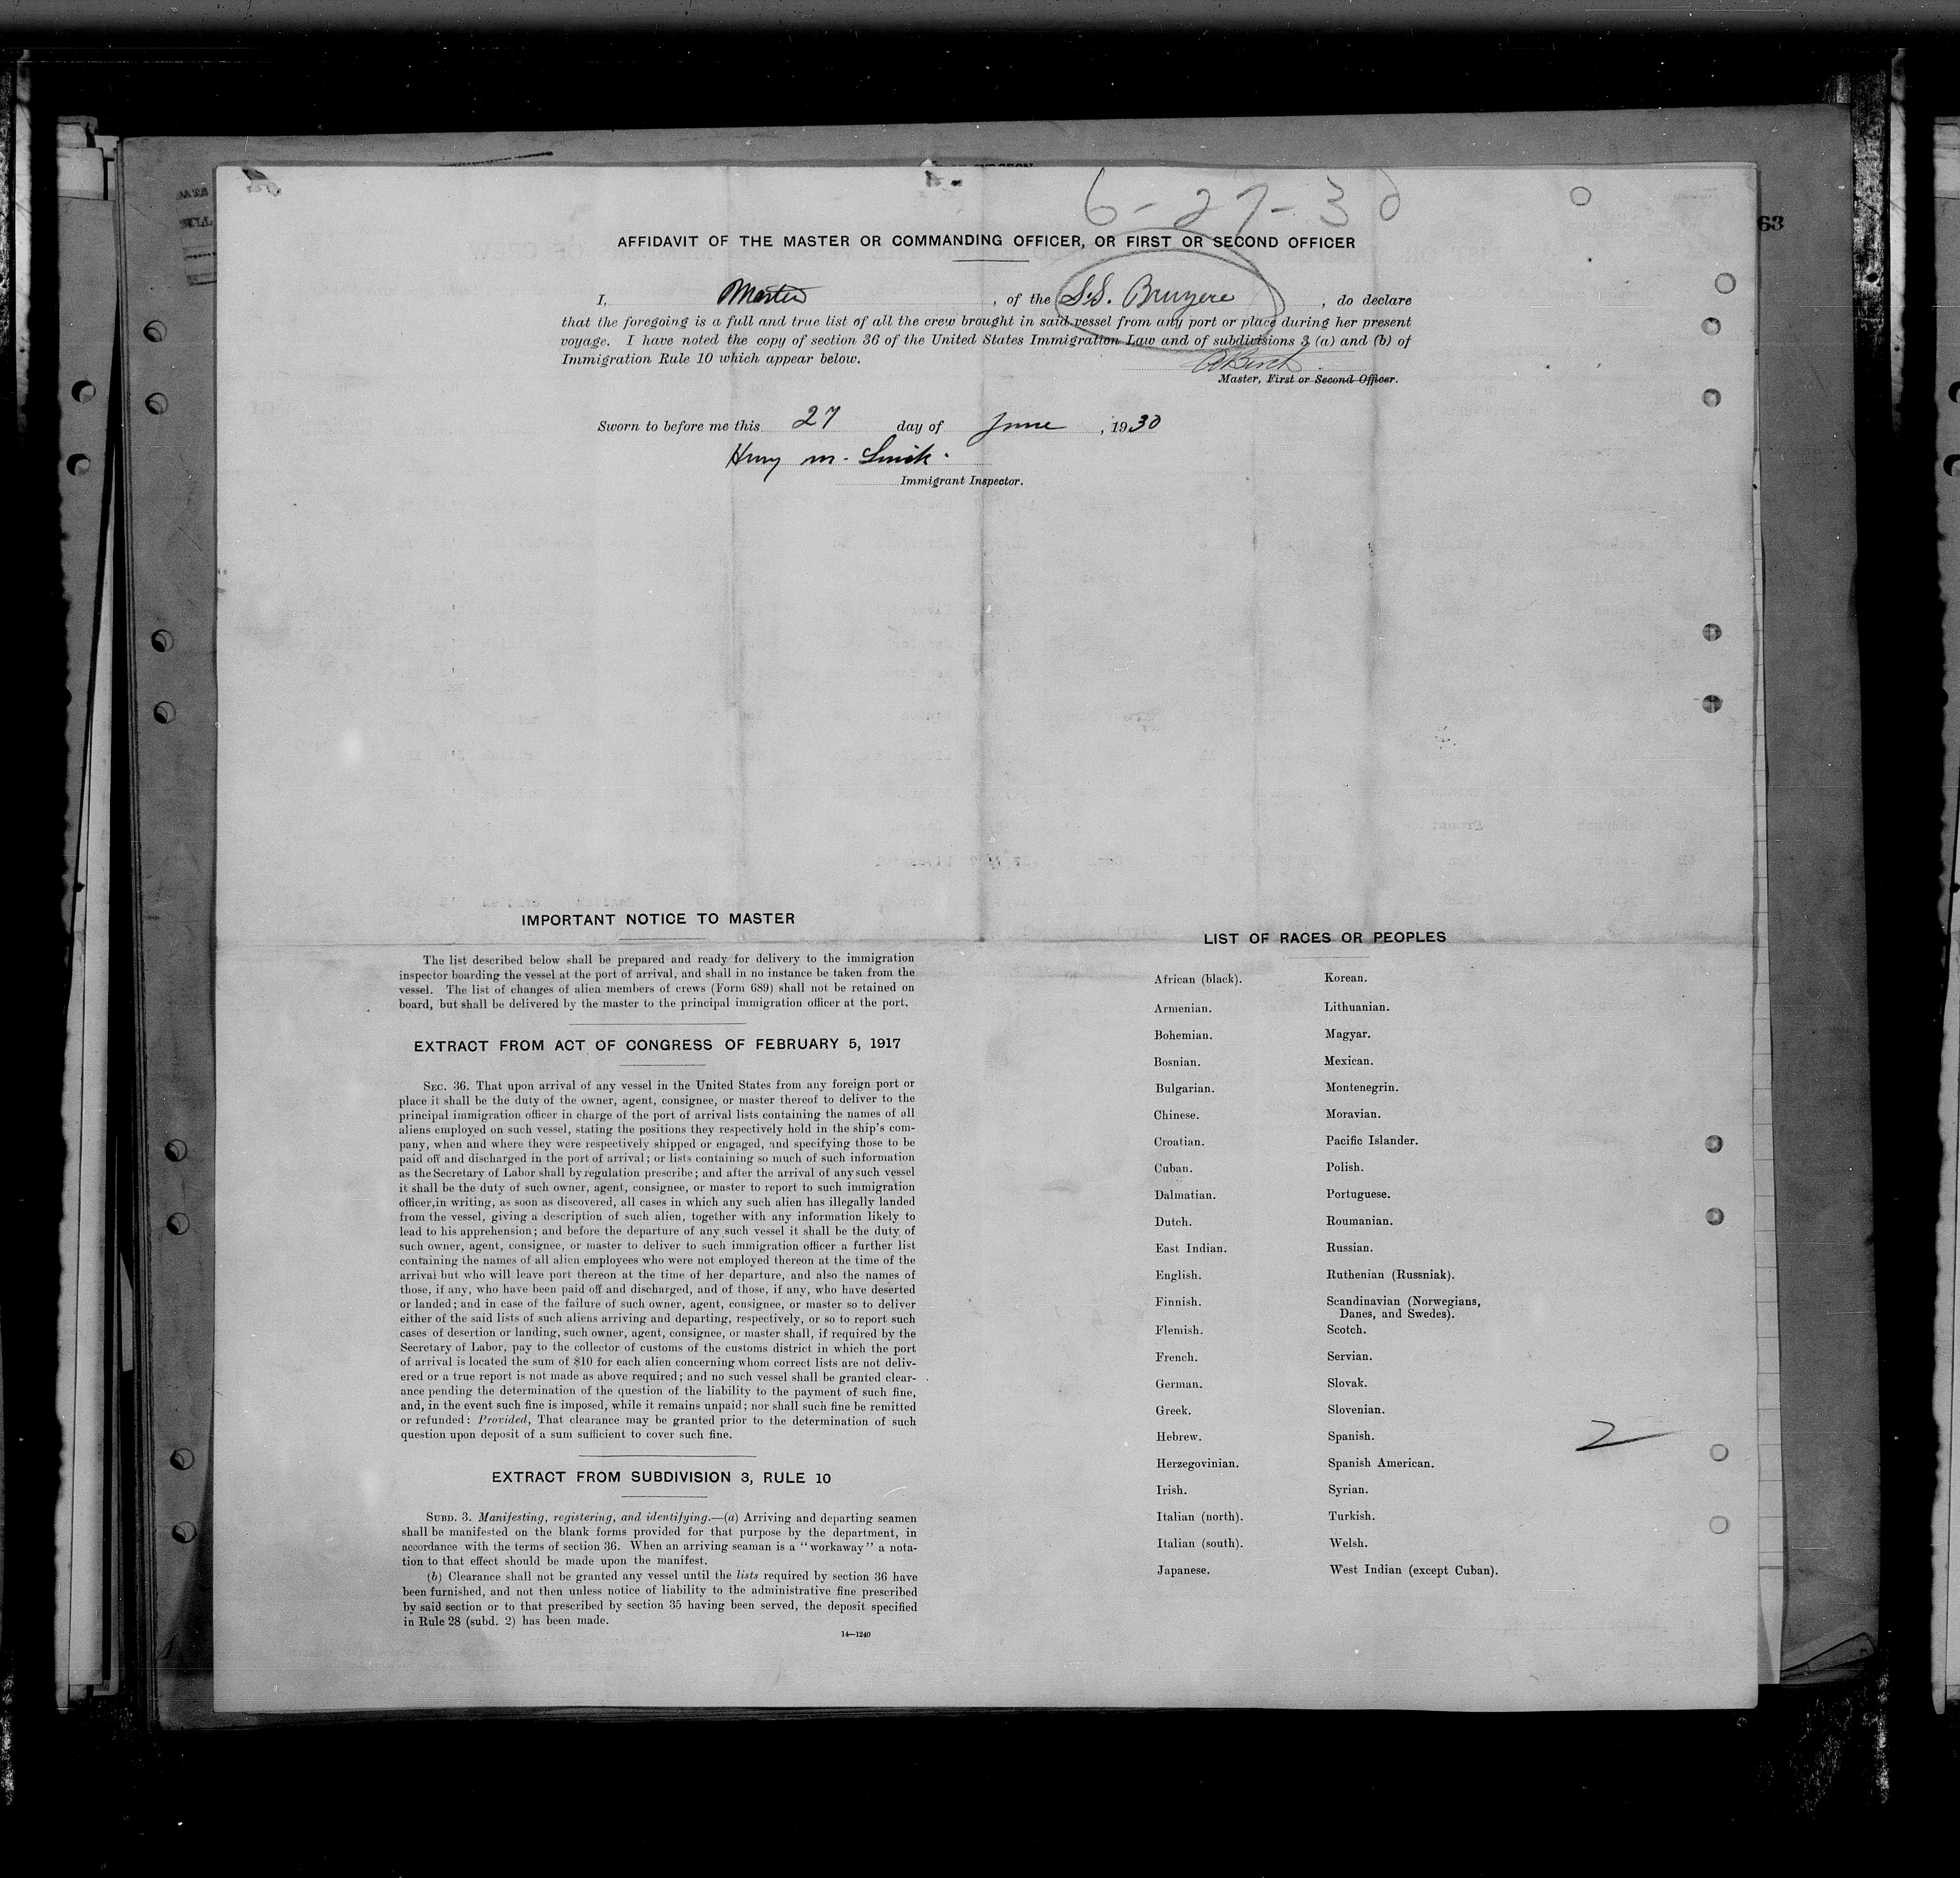 6-27-30
63
AFFIDAVIT OF THE MASTER OR COMMANDING OFFICER, OR FIRST OR SECOND OFFICER
I, Master, of the S.S. Bruyere, do declare
that the foregoing is a full and true list of all the crew brought in said vessel from any port or place during her present
voyage. I have noted the copy of section 36 of the United States Immigration Law and of subdivisions 3 (a) and (b) of
Immigration Rule 10 which appear below.
Master, First or Second Officer.
Sworn to before me this 27 day of June, 1930
Henry M.
Immigrant Inspector.
IMPORTANT NOTICE TO MASTER
The list described below shall be prepared and ready for delivery to the immigration
inspector boarding the vessel at the port of arrival, and shall in no instance be taken from the
vessel. The list of changes of alien members of crews (Form 689) shall not be retained on
board, but shall be delivered by the master to the principal immigration officer at the port.
EXTRACT FROM ACT OF CONGRESS OF FEBRUARY 5, 1917
SEC. 36. That upon arrival of any vessel in the United States from any foreign port or
place it shall be the duty of the owner, agent, consignee, or master thereof to deliver to the
principal immigration officer in charge of the port of arrival lists containing the names of all
aliens employed on such vessel, stating the positions they respectively hold in the ship's com-
pany, when and where they were respectively shipped or engaged, and specifying those to be
paid off and discharged in the port of arrival; or lists containing so much of such information
as the Secretary of Labor shall by regulation prescribe; and after the arrival of any such vessel
it shall be the duty of such owner, agent, consignee, or master to report to such immigration
officer, in writing, as soon as discovered, all cases in which any such alien has illegally landed
from the vessel, giving a description of such alien, together with any information likely to
lead to his apprehension; and before the departure of any such vessel it shall be the duty of
such owner, agent, consignee, or master to deliver to such immigration officer a further list
containing the names of all alien employees who were not employed thereon at the time of the
arrival but who will leave port thereon at the time of her departure, and also the names of
those, if any, who have been paid off and discharged, and of those, if any, who have deserted
or landed; and in case of the failure of such owner, agent, consignee, or master so to deliver
either of the said lists of such aliens arriving and departing, respectively, or so to report such
cases of desertion or landing, such owner, agent, consignee, or master shall, if required by the
Secretary of Labor, pay to the collector of customs of the customs district in which the port
of arrival is located the sum of $10 for each alien concerning whom correct lists are not deliv-
ered or a true report is not made as above required; and no such vessel shall be granted clear-
ance pending the determination of the question of the liability to the payment of such fine,
and, in the event such fine is imposed, while it remains unpaid; nor shall such fine be remitted
or refunded: Provided, That clearance may be granted prior to the determination of such
question upon deposit of a sum sufficient to cover such fine.
EXTRACT FROM SUBDIVISION 3, RULE 10
SUBD. 3. Manifesting, registering, and identifying.—(a) Arriving and departing seamen
shall be manifested on the blank forms provided for that purpose by the department, in
accordance with the terms of section 36. When an arriving seaman is a "workaway" a nota-
tion to that effect should be made upon the manifest.
(b) Clearance shall not be granted any vessel until the lists required by section 36 have
been furnished, and not then unless notice of liability to the administrative fine prescribed
by said section or to that prescribed by section 35 having been served, the deposit specified
in Rule 28 (subd. 2) has been made.
14—1240
LIST OF RACES OR PEOPLES
African (black).
Armenian.
Bohemian.
Bosnian.
Bulgarian.
Chinese.
Croatian.
Cuban.
Dalmatian.
Dutch.
East Indian.
English.
Finnish.
Flemish.
French.
German.
Greek.
Hebrew.
Herzegovinian.
Irish.
Italian (north).
Italian (south).
Japanese.
Korean.
Lithuanian.
Magyar.
Mexican.
Montenegrin.
Moravian.
Pacific Islander.
Polish.
Portuguese.
Roumanian.
Russian.
Ruthenian (Russniak).
Scandinavian (Norwegians,
Danes, and Swedes).
Scotch.
Servian.
Slovak.
Slovenian.
Spanish.
Spanish American.
Syrian.
Turkish.
Welsh.
West Indian (except Cuban).
2